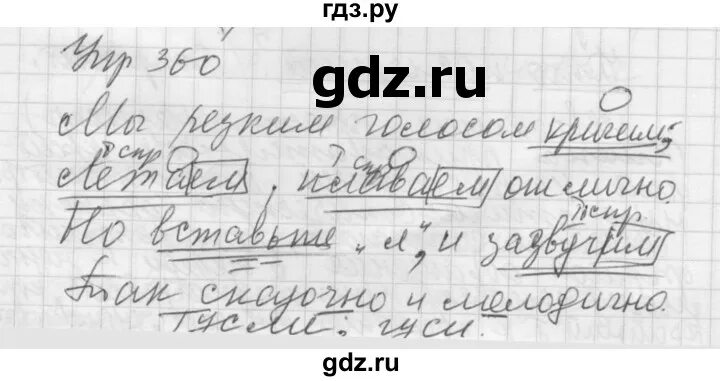 гдз.ру
Упр 360
gdz.ru
Мы резким голосом кричим,
I спр I спр
Летаем, плаваем отлично.
II спр.
Но вставьте "л", и зазвучим
Так сказочно и мелодично.
Гусли: гуси.
gdz.ru